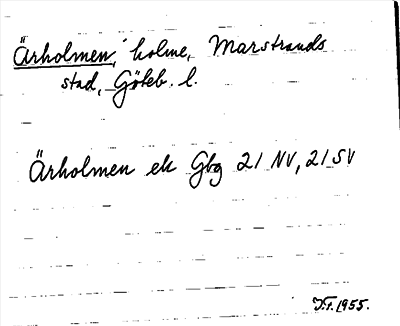 Ärholmen, holme, Marstrands
stad, Göteb. l.
Ärholmen ek Gbg 21 NV, 21 SV
1955.